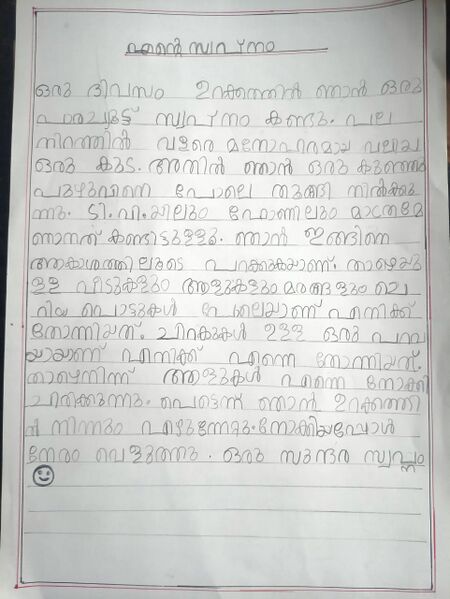 എന്റെ സ്വപ്നം
ഒരു ദിവസം ഉറക്കത്തിൽ ഞാൻ ഒരു
പാരച്യൂട്ട് സ്വപ്നം കണ്ടു. പല
നിറത്തിൽ വളരെ മനോഹരമായ വലിയ
ഒരു കുട. അതിൽ ഞാൻ ഒരു കുഞ്ഞു
പുഴുവിനെ പോലെ തൂങ്ങി നിൽക്കു
ന്നു. ടി.വി.യിലും ഫോണിലും മാത്രമേ
ഞാനത് കണ്ടിട്ടുള്ളു. ഞാൻ ഇങ്ങിനെ
ആകാശത്തിലൂടെ പറക്കുകയാണ്. താഴെയു
ള്ള വീടുകളും ആളുകളും മരങ്ങളും ചെ
റിയ പൊട്ടുകൾ പോലെയാണ് എനിക്ക്
തോന്നിയത്. ചിറകുകൾ ഉള്ള ഒരു പറവ
യായാണ് എനിക്ക് എന്നെ തോന്നിയത്.
താഴെനിന്ന് ആളുകൾ എന്നെ നോക്കി
ചിരിക്കുന്നു. പെട്ടെന്ന് ഞാൻ ഉറക്കത്തി
ൽ നിന്നും എഴുന്നേറ്റു. നോക്കിയപ്പോൾ
നേരം വെളുത്തു. ഒരു സുന്ദര സ്വപ്നം